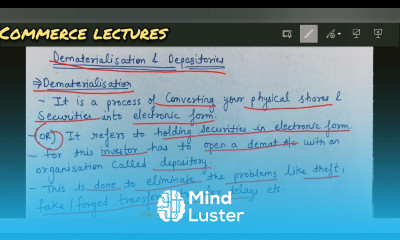 COMMERCE LECTURES
Dematerialisation & Depositories
⇒ Dematerialisation
- It is a process of Converting your physical shares &
Securities into electronic form.
OR) It refers to holding securities in electronic form.
- For this investor has to open a demat A/c with an
organisation called depository.
- This is done to eliminate the problems like theft,
fake/forged transfers, delays etc.
Mind
Luster